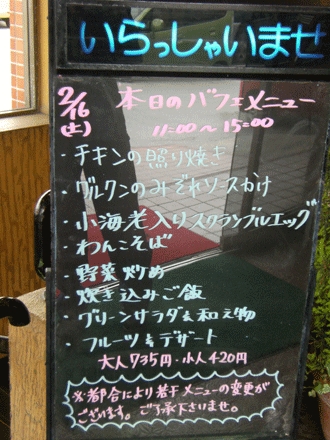 いらっしゃいませ
2/16
(土)
本日のバフェメニュー
11:00〜15:00
・チキンの照り焼き
・グルクンのみぞれソースかけ
・小海老入りスクランブルエッグ
・わんこそば
・野菜炒め
・炊き込みご飯
・グリーンサラダ&和え物
・フルーツ&デザート
大人735円・小人420円
※都合により若干メニューの変更が
ございます。ご了承下さいませ。